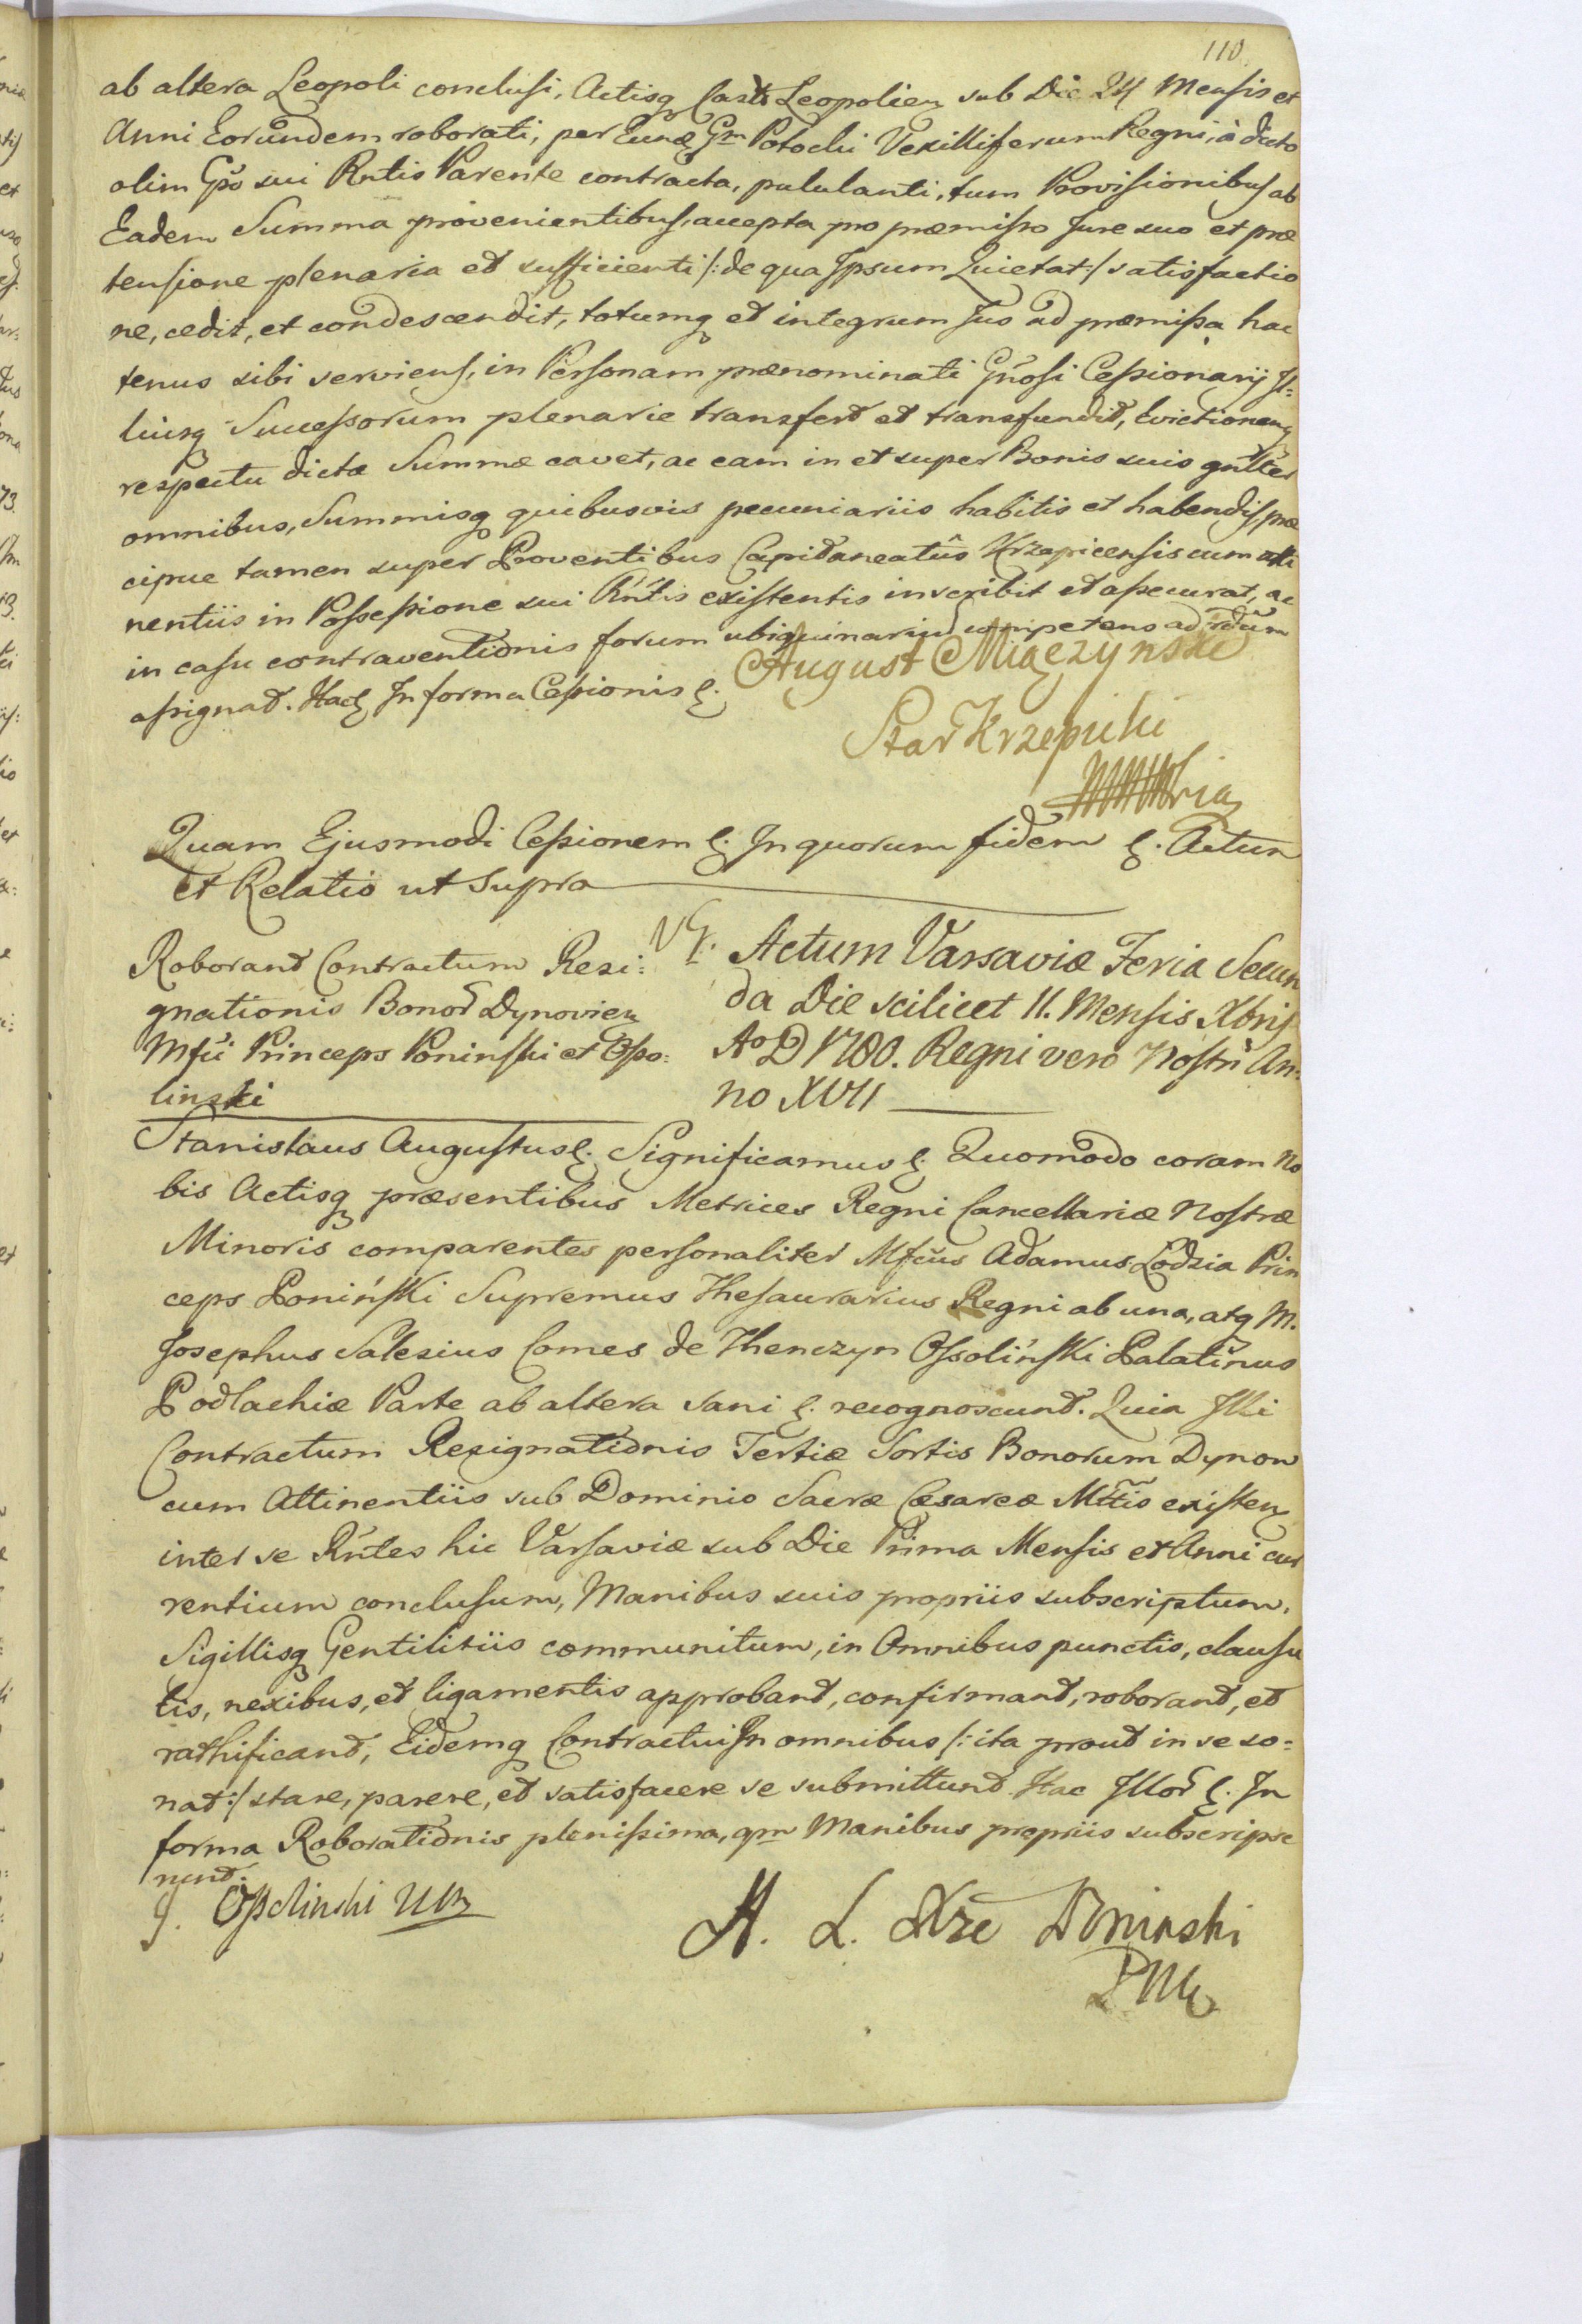 110.
ab altera Leopoli conclusi, Actisq Castr Leopolien sub Die 24 Mensis et
Anni Eorundem roborati, per Gm Potocki Vexilliferum Regni, à dicto
olim Gso sui Rntis Parente contracta, pululanti, tum Provisionibus ab
Eadem Summa provenientibus, accepta pro præmisso Jure suo et præ
tensione plenaria et sufficienti /: de qua Ipsum Quietat :/ satisfactio
ne, cedit, et condescendit, totumq et integrum Jus ad præmissa hac
tenus sibi serviens, in Personam prænominati Gnosi Cessionarij Il=
liusq Successorum plenarie transfert et transfundit, Evictionemq
respectu dictæ Summæ cavet, ac eam in et super Bonis suis gnlter
omnibus, Summisq quibusvis pecuniariis habitis et habendis, præ
cipue tamen super Proventibus Capitaneatûs Krzepicensis cum atti
nentiis in Possessione sui Rntis existentis inscribit et assecurat, ac
in casu contraventionis forum ubiquinarium competens ad rdum
assignat. Hac In forma Cessionis &.
August Miączynski
Star Krzepicki
Quam Ejusmodi Cessionem &. In quorum fidem &. Actum
et Relatio ut supra
Roborant Contractum Resi=
gnationis Bonor Dynovien
Mfci Princeps Poninski et Osso=
linski
Actum Varsaviæ Feria Secun
da Die scilicet 11. Mensis Xbris
Ao D 1780. Regni vero Nostri An=
no XVII
Stanislaus Augustus &. Significamus &. Quomodo coram No
bis Actisq præsentibus Metrices Regni Cancellariæ Nostræ
Minoris comparentes personaliter Mfcus Adamus Lodzia Prin
ceps Poniński Supremus Thesaurarius Regni ab una, atq M.
Josephus Salesius Comes de Thenczyn Ossoliński Palatinus
Podlachiæ Parte ab altera sani &. recognoscunt. Quia Illi
Contractum Resignationis Tertiæ Sortis Bonorum Dynow
cum Attinentiis sub Dominio Sacræ Cæsareæ Mttis existen
inter se Rntes hic Varsaviæ sub Die Prima Mensis et Anni cur
rentium conclusum, Manibus suis propriis subscriptum,
Sigillisq Gentilitiis communitum, in Omnibus punctis, clausu
lis, nexibus, et ligamentis approbant, confirmant, roborant, et
rathificant, Eidemq Contractui In omnibus /: ita prout in se so=
nat :/ stare, parere, et satisfacere se submittunt. Hac Illor &. In
forma Roborationis plenissima, qm Manibus propriis subscripse
runt.
J. Ossolinski
A. L. Xże Poninski